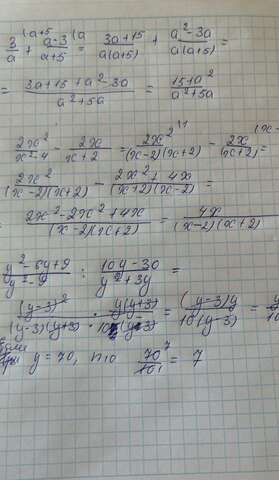 3/a + (a-3)/(a+5) = (3a+15)/(a(a+5)) + (a²-3a)/(a(a+5)) =
= (3a+15+a²-3a)/(a²+5a) = (15+a²)/(a²+5a)
2x²/(x²-4) - 2x/(x+2) = 2x²/((x-2)(x+2)) - 2x/(x+2) =
2x²/((x-2)(x+2)) - (2x²+4x)/((x+2)(x-2)) =
(2x²-2x²+4x)/((x-2)(x+2)) = 4x/((x-2)(x+2))
(y²-6y+9)/(y²-9) : (10y-30)/(y²+3y) =
(y-3)²/((y-3)(y+3)) · y(y+3)/(10(y-3)) = (y-3)y/(10(y-3)) =
при y=70, то 70/10 = 7